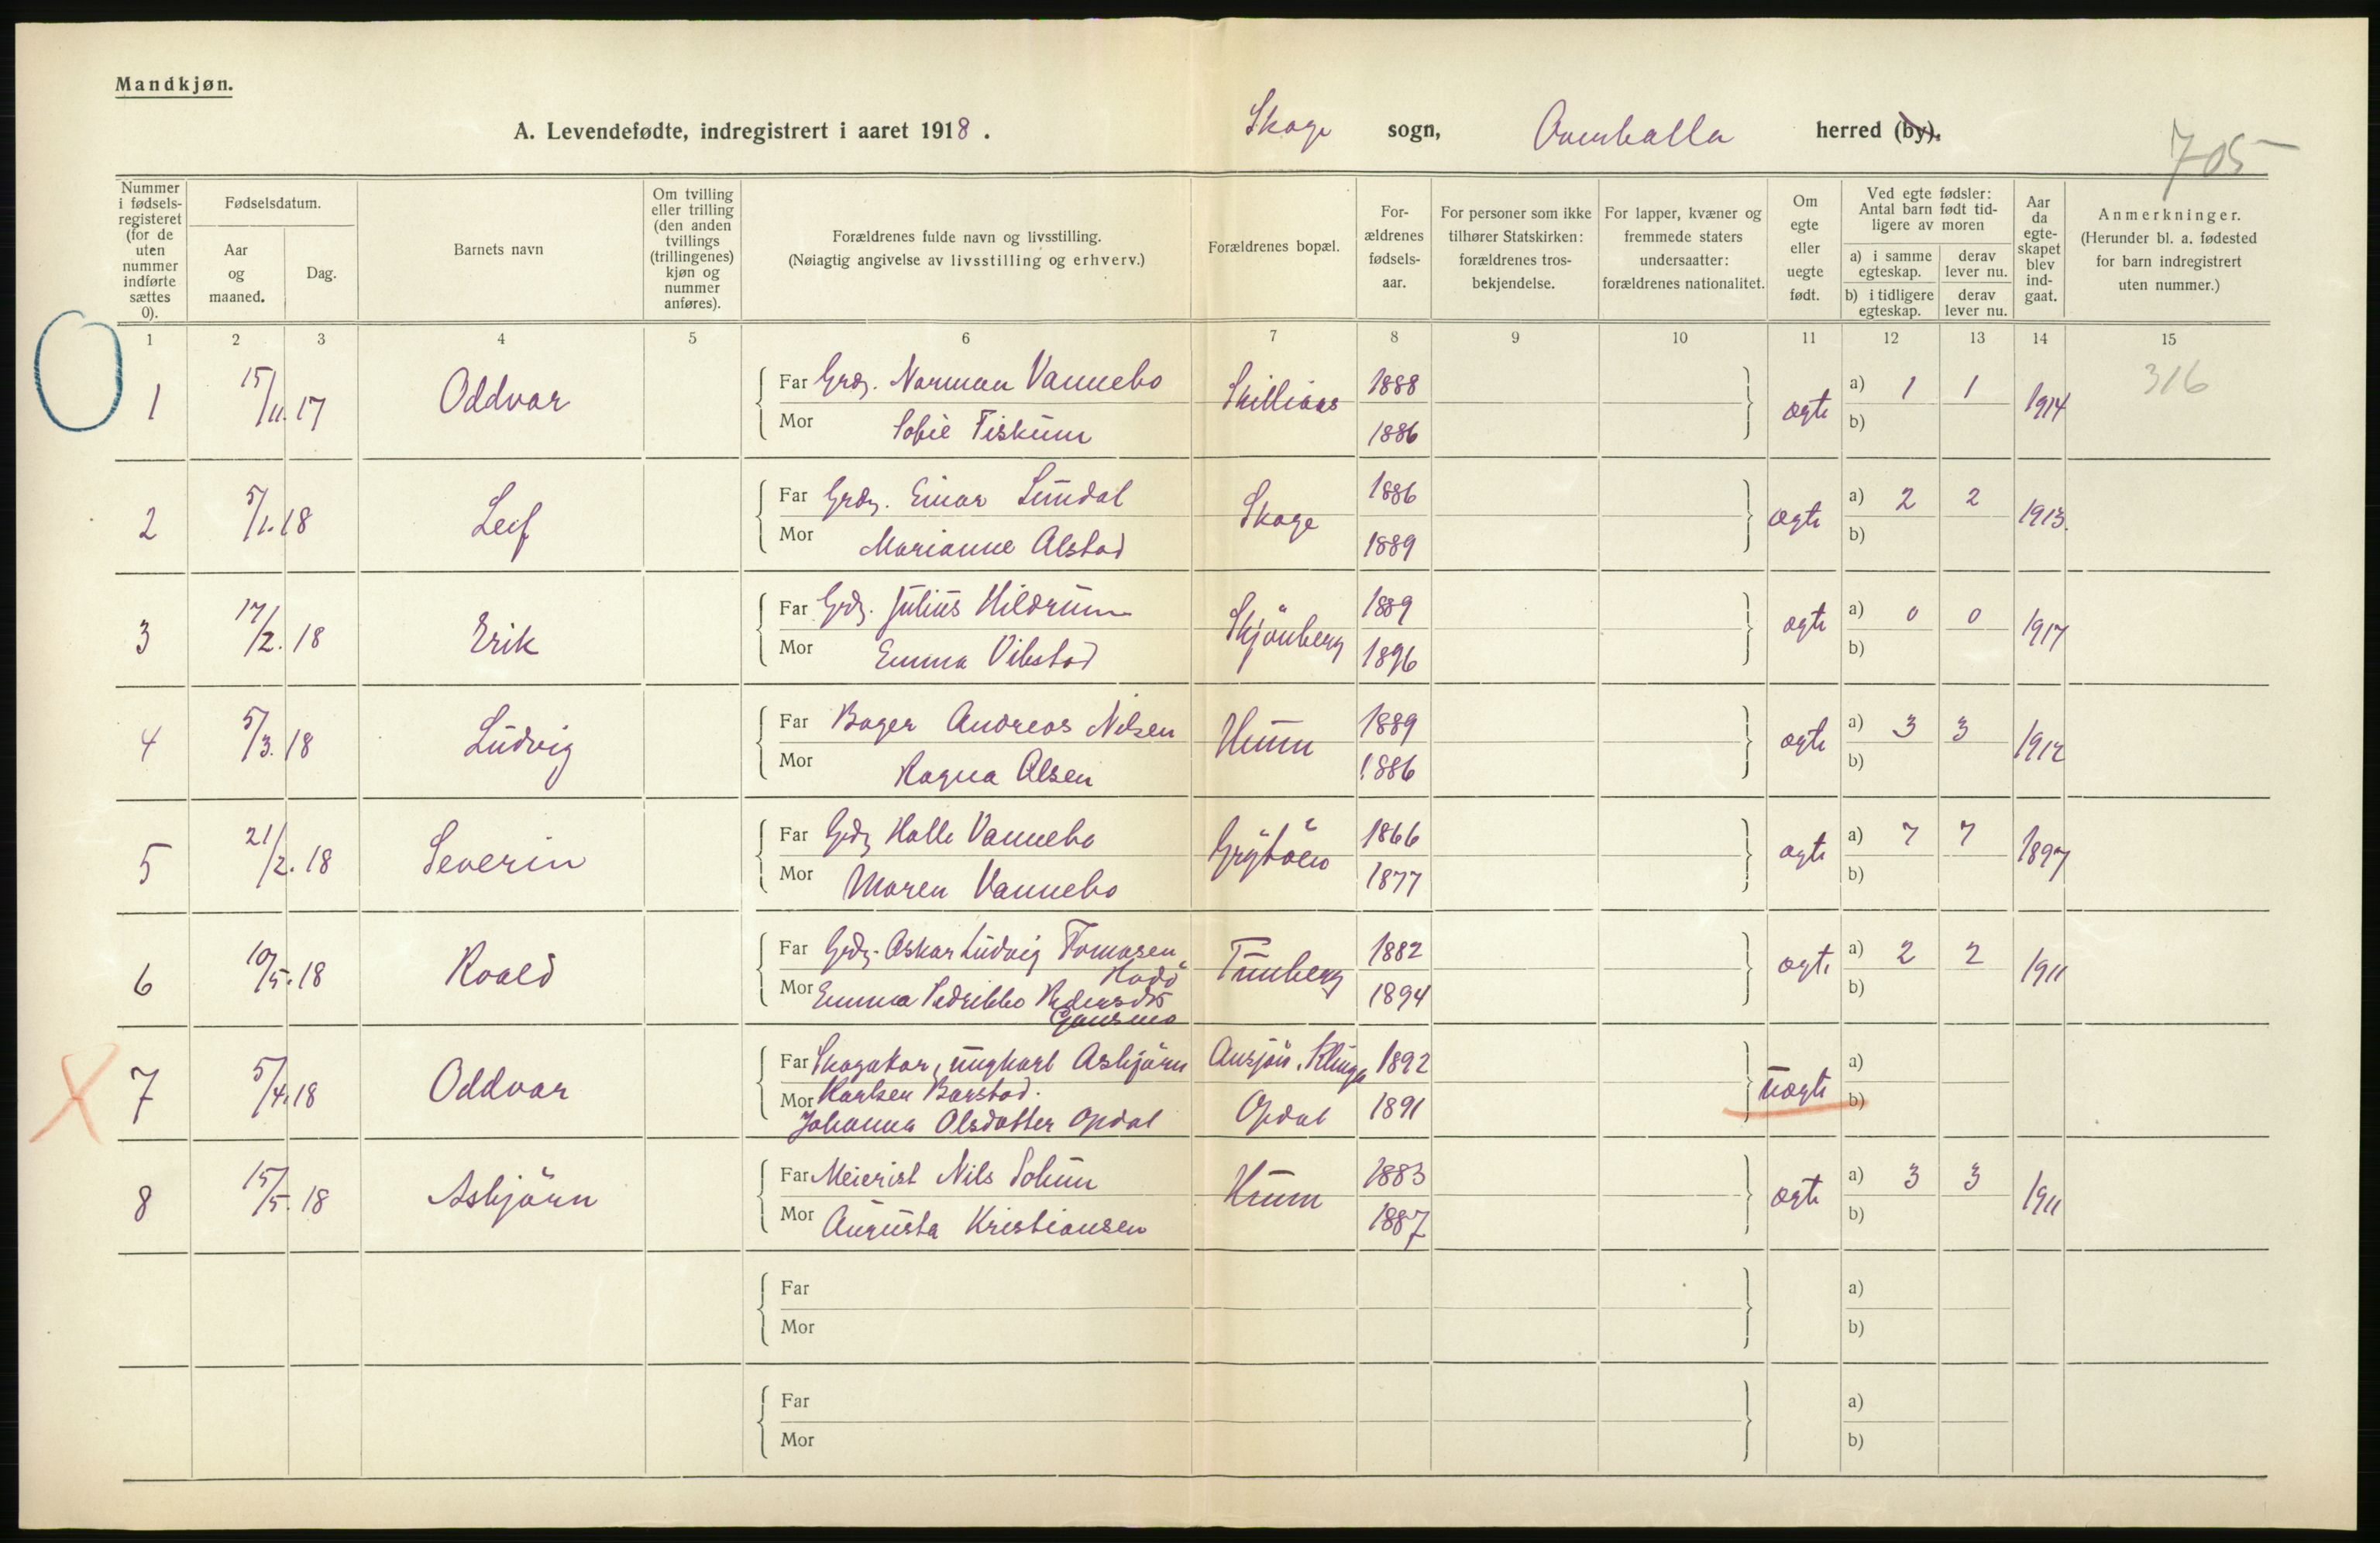 Mandkjøn.
A. Levendefødte, indregistrert i aaret 1918. Skage sogn, Overhalla herred (by).
705
Nummer i fødsels-registeret (for de uten nummer indførte sættes 0).
Fødselsdatum.
Aar og maaned.
Dag.
Barnets navn
Om tvilling eller trilling (den anden tvillings (trillingenes) kjøn og nummer anføres).
Forældrenes fulde navn og livsstilling.
(Nøiagtig angivelse av livsstilling og erhverv.)
Forældrenes bopæl.
For-ældrenes fødsels-aar.
For personer som ikke tilhører Statskirken: forældrenes tros-bekjendelse.
For lapper, kvæner og fremmede staters undersaatter: forældrenes nationalitet.
Om egte eller uegte født.
Ved egte fødsler: Antal barn født tid-ligere av moren
a) i samme egteskap. derav lever nu.
b) i tidligere egteskap. derav lever nu.
Aar da egte-skapet blev ind-gaat.
Anmerkninger.
(Herunder bl. a. fødested for barn indregistrert uten nummer.)
1 2 3 4 5 6 7 8 9 10 11 12 13 14 15
1 15/11.17 Oddvar Far Grdr. Norman Vannebo Skilliaas 1888 ægte a) 1 1 1914 316
Mor Sofie Fiskum 1886 b)
2 5/1.18 Leif Far Grdr. Einar Lundal Skage 1886 ægte a) 2 2 1913.
Mor Marianne Alstad 1889 b)
3 17/2.18 Erik Far Grdr. Julius Hildrum Skjönberg 1889 ægte a) 0 0 1917
Mor Emma Vibstad 1896 b)
4 5/3.18 Ludvig Far Bager Andreas Nilsen Hunn 1889 ægte a) 3 3 1912
Mor Ragna Olsen 1886 b)
5 21/2.18 Severin Far Grdr Halle Vannebo 1866 ægte a) 7 7 1897
Mor Maren Vannebo 1877 b)
6 10/5.18 Roald Far Grdr. Oskar Ludvig Tomasen Hadö Tunberg 1882 ægte a) 2 2 1911
Mor Emma Pedersdtr Gansmo 1894 b)
7 5/4.18 Oddvar Far Skogskar, ungkarl Asbjörn Karlsen Barstad. Klinga 1892 uægte a)
Mor Johanna Olsdatter Opdal Opdal 1891 b)
8 15/5.18 Asbjörn Far Meierist Nils Solum Hunn 1883 ægte a) 3 3 1911
Mor Augusta Kristiansen 1887 b)
Far a)
Mor b)
Far a)
Mor b)